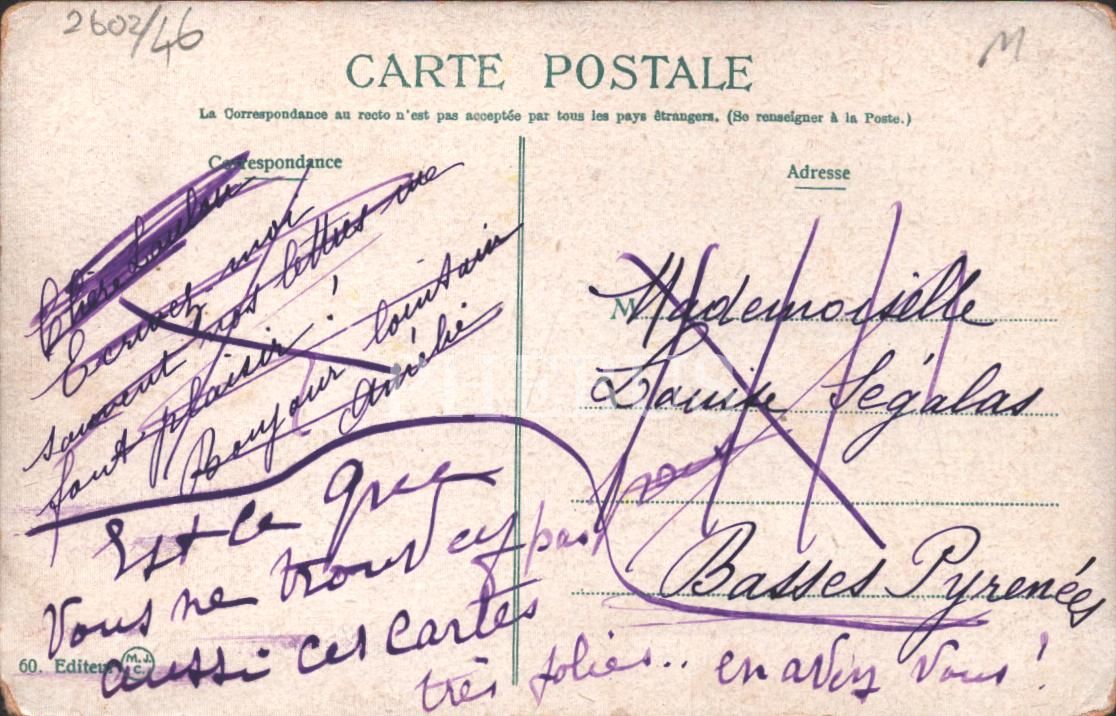 2602/46
M
CARTE POSTALE
La Correspondance au recto n'est pas acceptée par tous les pays étrangers. (Se renseigner à la Poste.)
Correspondance
Chère Loulou
Ecrivez moi
souvent vos lettres me
font plaisir !
Bonjour lointain
Aurélie
Est ce que
vous ne trouvez pas
aussi ces cartes
très jolies.. en avez vous !
60. Editeur M.J. C.
Adresse
M
Mademoiselle
Louise Ségalas
Basses Pyrenées